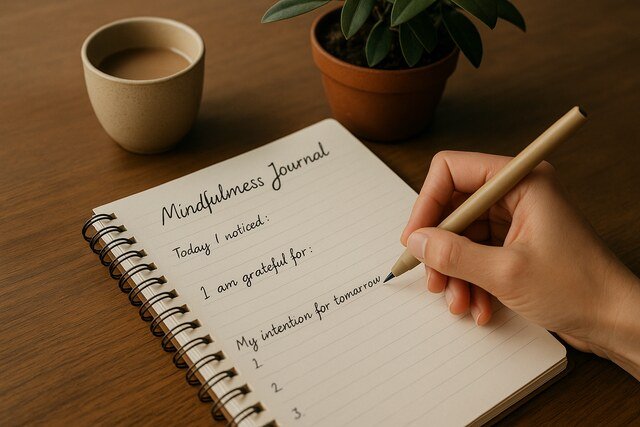 Mindfulness Journal
Today I noticed:
I am grateful for:
My intention for tomorrow
1
2
3.